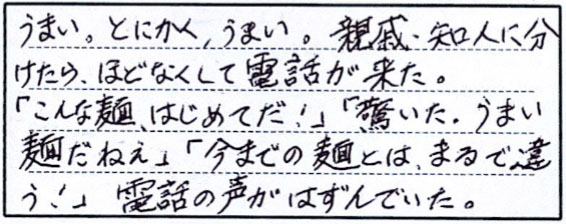 うまい。とにかく、うまい。親戚・知人に分
けたら、ほどなくして電話が来た。
「こんな麺、はじめてだ!」「驚いた。うまい
麺だねえ」「今までの麺とは、まるで違
う!」電話の声がはずんでいた。